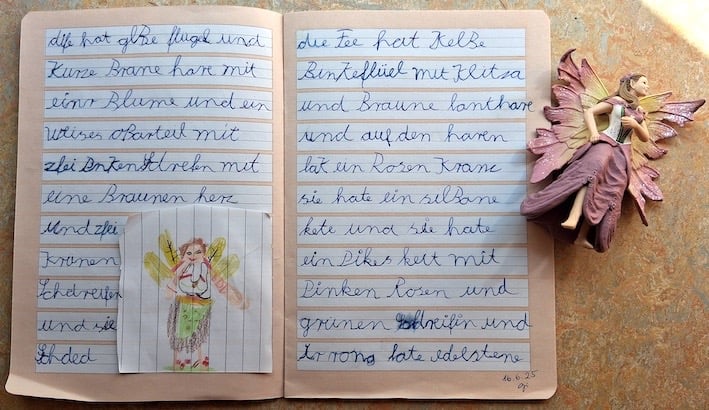 dise hat glBe flugel und
Kurze Brane hare mit
einr Blume und ein
Weises oBarteil mit
zfei Dnken Streifen mit
eine Braunen herz
und zfei
Kranen
Schdreifen
und sie
Schded
die Fee hat HelBe
Binkeflüel mit Klitza
und Braune lanthare
und auf den haren
hat ein Rosen Kranc
sie hate ein silBane
kete und sie hate
ein Dikes kelt mit
Dinken Rosen und
grünen und
hate edelstene
16.6.25